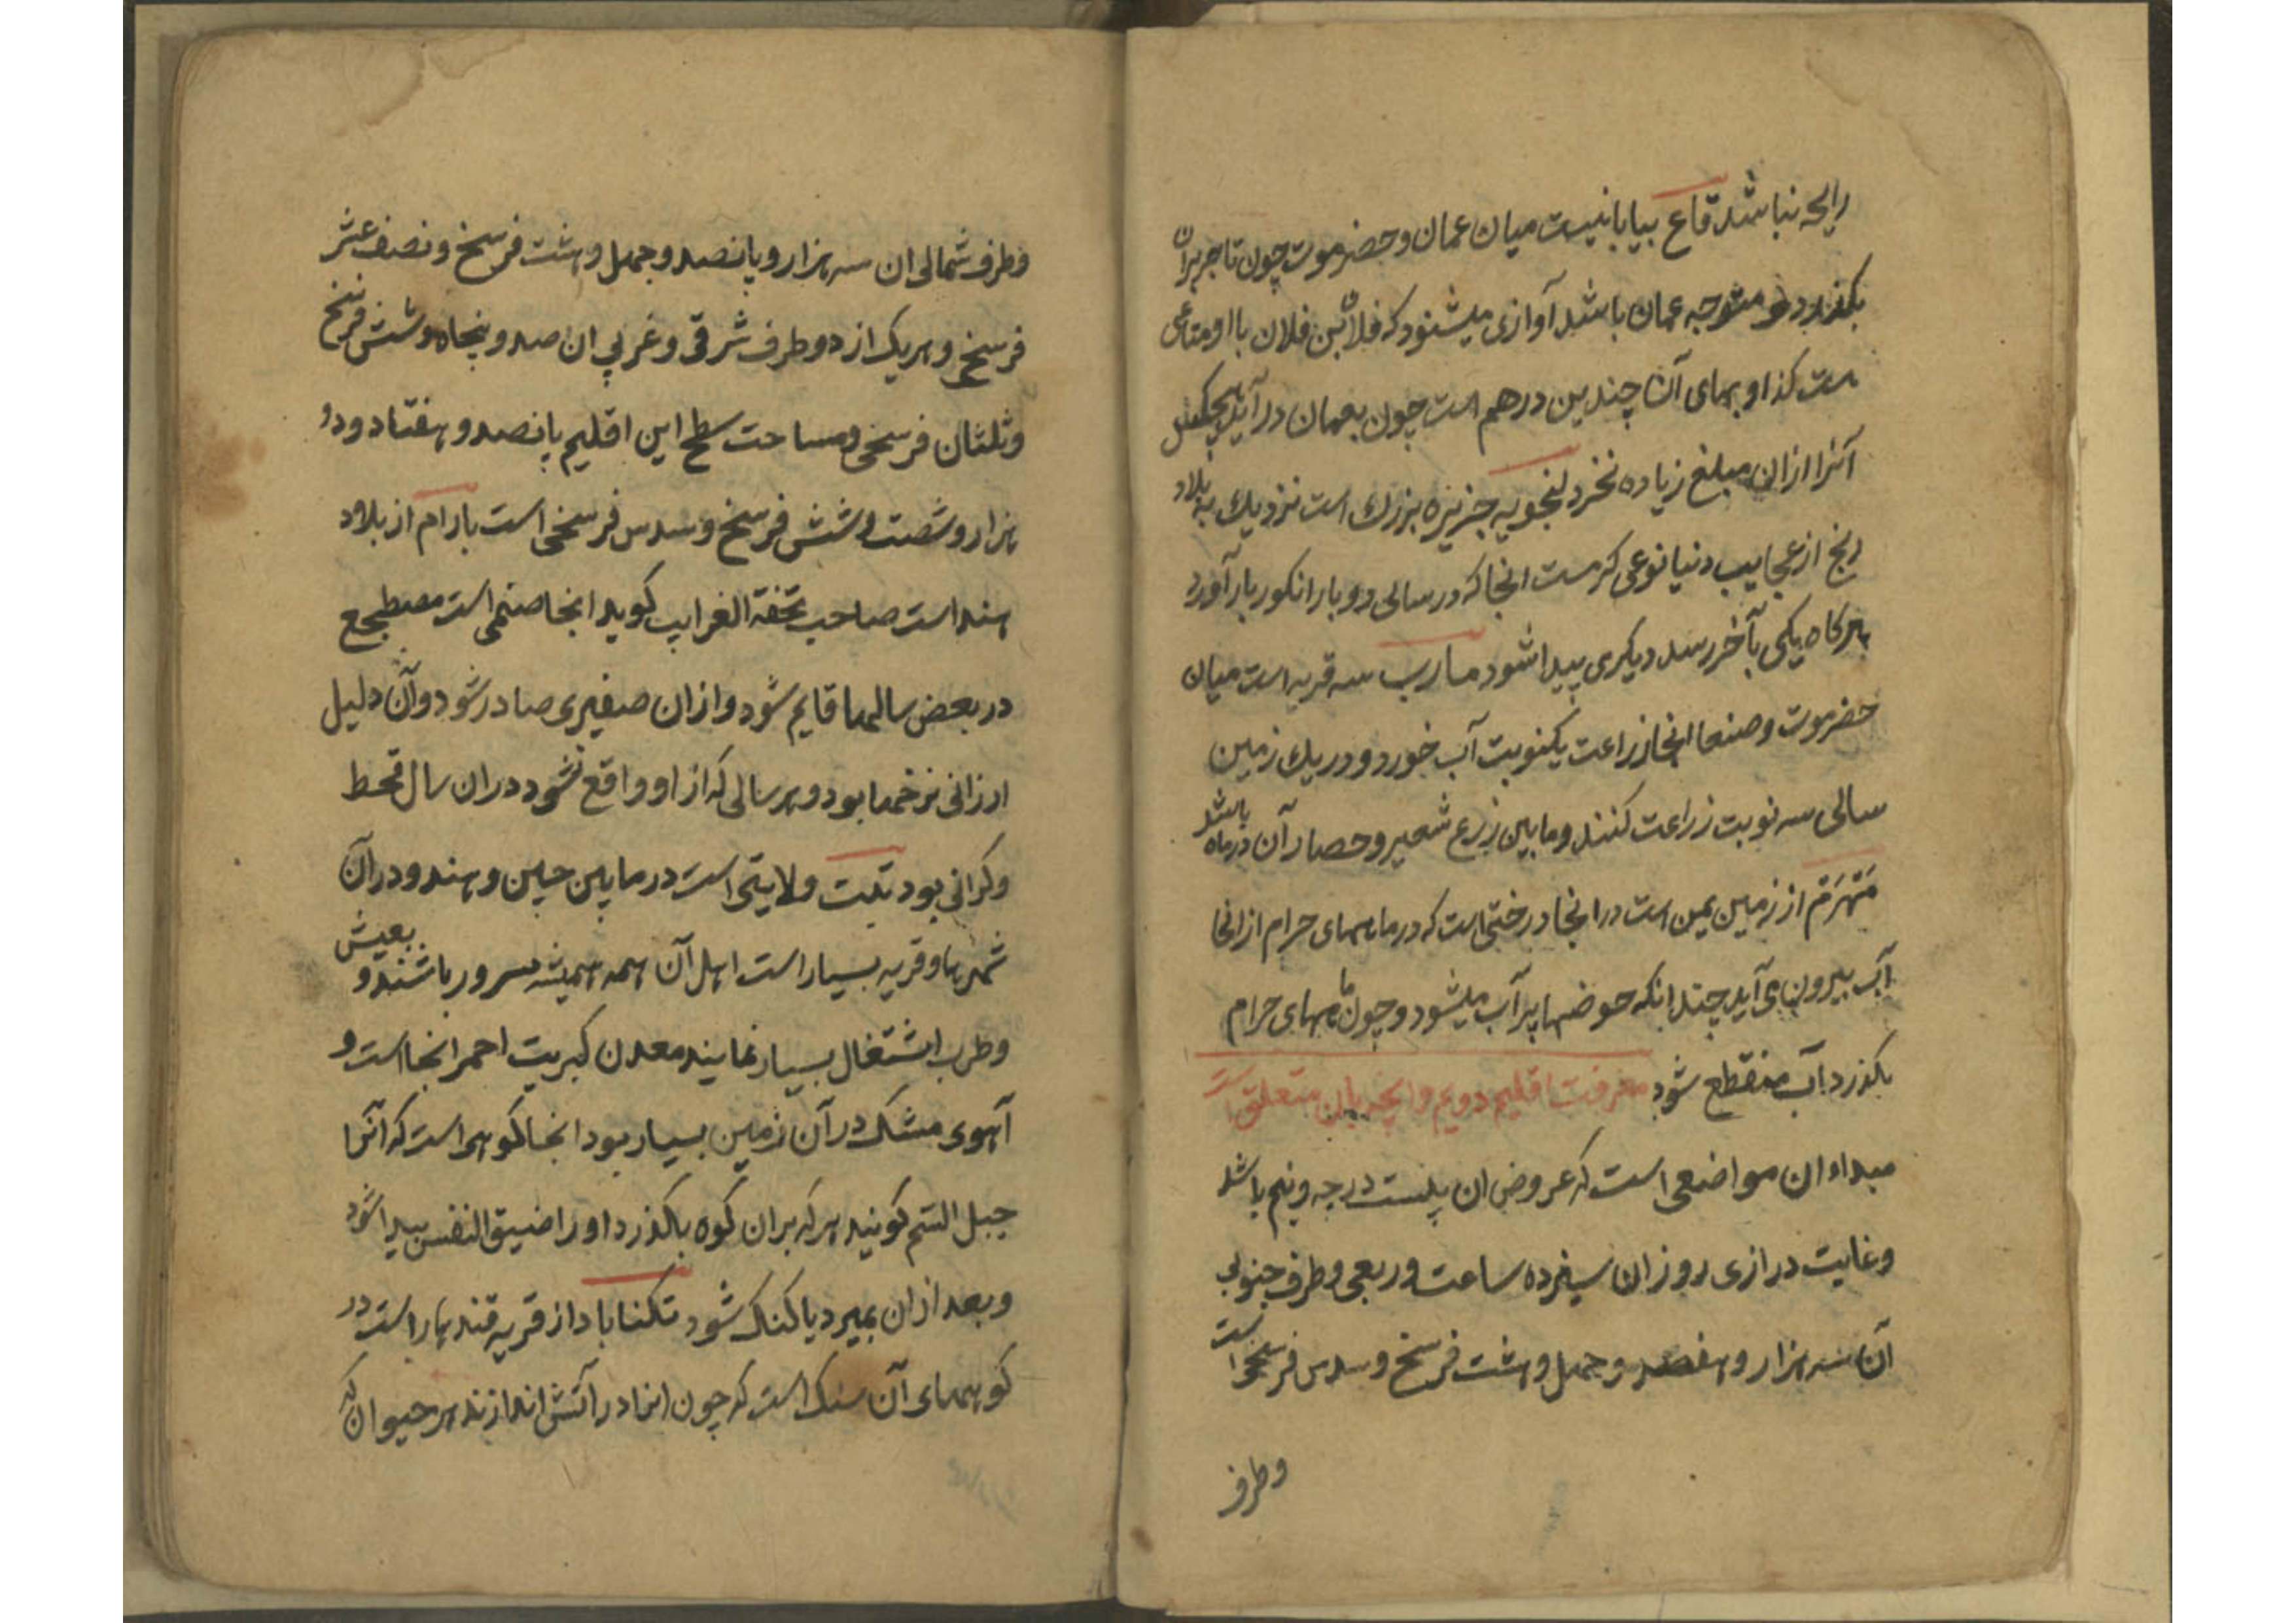 رایحه نباشد قاع بیابانیست میان عمان و حضرموت چون تاجر بران
بکذرد و متوجه عمان باشد آوازی میشنود که فلان بن فلان با او متاعی
ست کذا و بهای آن چندین درهم است چون بعمان درآید هیچکس
آنرا ازان مبلغ زیاده نخرد لنجویه جزیره بزرك است نزدیك به بلاد
زنج از عجایب دنیا نوعی کرمست انجا که در سالی دو بار انکور بار آورد
هرکاه یکی بآخر رسد دیکری پیدا شود مارب سه قریه است میان
حضرموت و صنعا انجا زراعت یکنوبت آب خورد و در یك زمین
سالی سه نوبت زراعت کنند و مابین زرع شعیر و حصار آن دو ماه باشد
از زمین یمن است در انجا درختی است که در ماههای حرام از انجا
آب بیرون می آید چندانکه حوضها پر آب میشود و چون ماههای حرام
بکذرد آب منقطع شود معرفت اقلیم دویم و انچه بان متعلق است
مبداء ان مواضعی است که عروض ان بیست درجه و نیم باشد
و غایت درازی روز ان سیزده ساعت و ربعی و طرف جنوبی
آن سه هزار و هفصد و چهل و هشت فرسخ و سدس فرسخی است
وطرف
وطرف شمالی ان سه هزار و پانصد و چهل و هشت فرسخ و نصف عشر
فرسخ و هریک از دو طرف شرقی و غربی ان صد و پنجاه و شش فرسخ
و ثلثان فرسخی و مساحت سطح این اقلیم پانصد و هفتاد و دو
هزار و شصت و شش فرسخ و سدس فرسخی است بارام از بلاد
هند است صاحب تحفة الغرایب کوید انجا صنمی است مضطجع
در بعض سالها قایم شود و ازان صفیری صادر شود و آن دلیل
ارزانی نرخها بود و هر سالی که از او واقع نشود دران سال قحط
و کرانی بود تبت ولایتی است در مابین چین و هند و در آن
شهرها و قریه بسیار است اهل آن همه همیشه مسرور باشند و بعیش
و طرب اشتغال بسیار نمایند معدن کبریت احمر انجا است و
آهوی مشک در آن زمین بسیار بود انجا کوهی است که آنرا
جبل السم کویند هر که بران کوه بکذرد او را ضیق النفس پیدا شود
و بعد ازان بمیرد یا کنک شود تکناباد از قریه قندهار است در
کوههای آن سنک است که چون انرا در آتش اندازند هر حیوان که